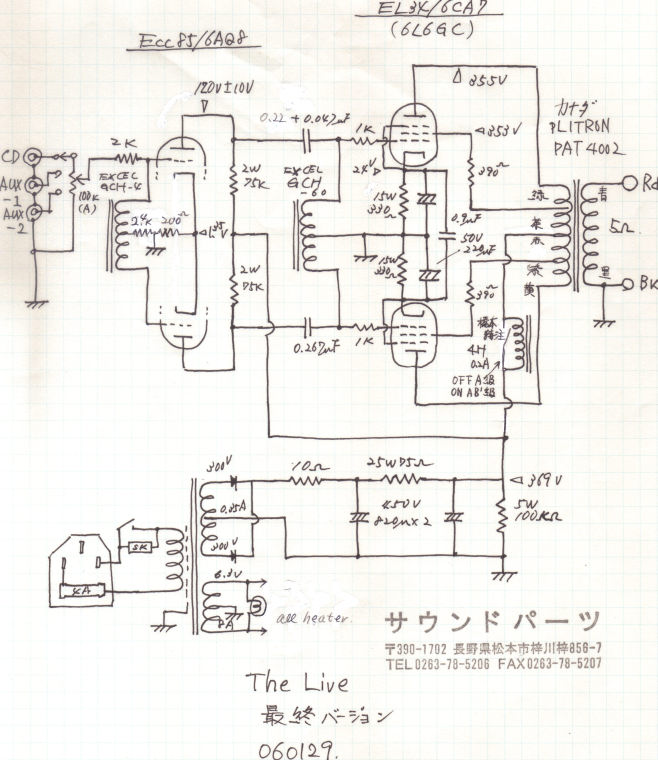 EL34/6CA7
(6L6GC)
Ecc85/6AQ8
120V±10V
355V
0.22+0.047μF
1K
353V
カナダ
PLITRON
PAT4002
CD
2K
AUX
-1
AUX
-2
100K
(A)
EXCEL
GCH-4
2W
75K
EXCEL
GCH
-60
24V
390Ω
15W
330Ω
緑
青
Rd
200Ω
0.9μF
50V
220μF
茶
赤
5Ω
2W
75K
15W
330Ω
緑
黄
黒
Bk
390Ω
0.267μF
1K
4H
0.2A
OFF A級
ON AB'級
300V
10Ω
25W75Ω
369V
0.35A
450V
820μ×2
5W
100KΩ
SK
300V
4A
6.3V
8A
all heater.
サウンドパーツ
〒390-1702 長野県松本市梓川梓856-7
TEL0263-78-5206 FAX0263-78-5207
The Live
最終バージョン
060129.